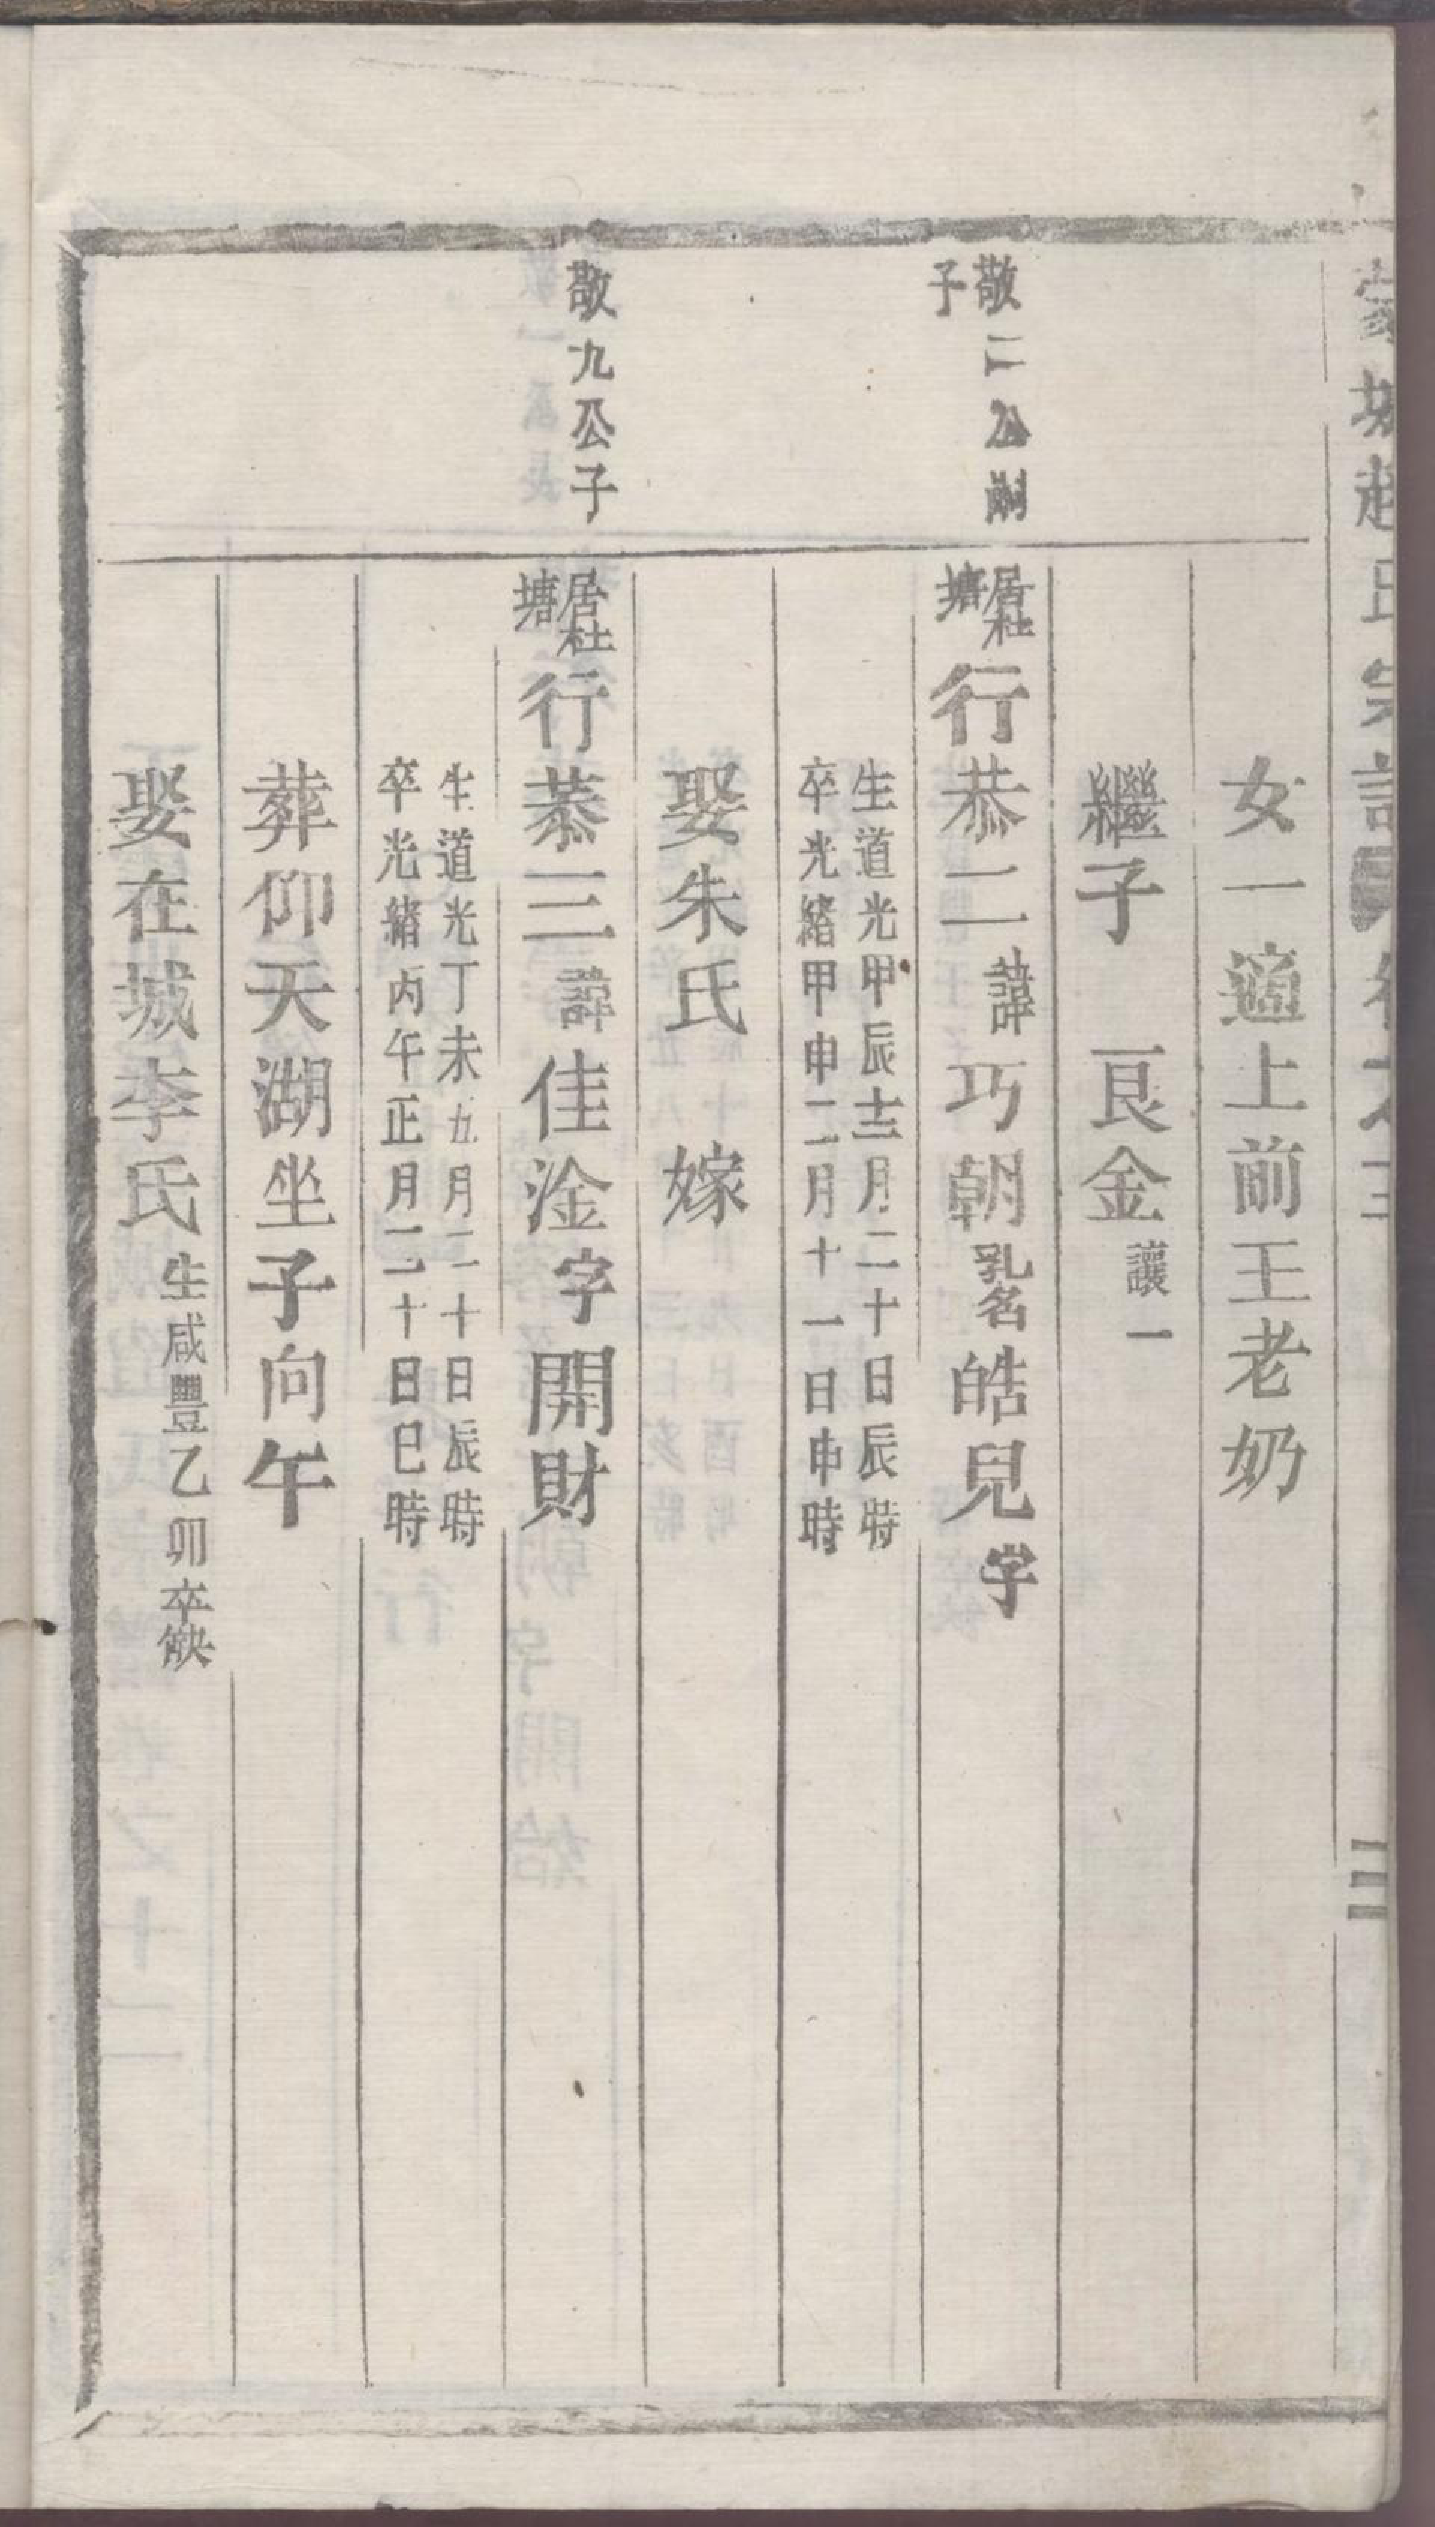 女一適上前王老奶
繼子 良金讓一
敬二公嗣
子
居杜
塘
行恭二諱巧朝乳名皓兒字
生道光甲辰十二月二十日辰時
卒光緒甲申二月十一日申時
娶朱氏 嫁
敬九公子
居杜
塘
行恭三諱佳淦字開財
生道光丁未九月二十日辰時
卒光緒丙午正月二十日巳時
葬仰天湖坐子向午
娶在城李氏生咸豐乙卯卒缺